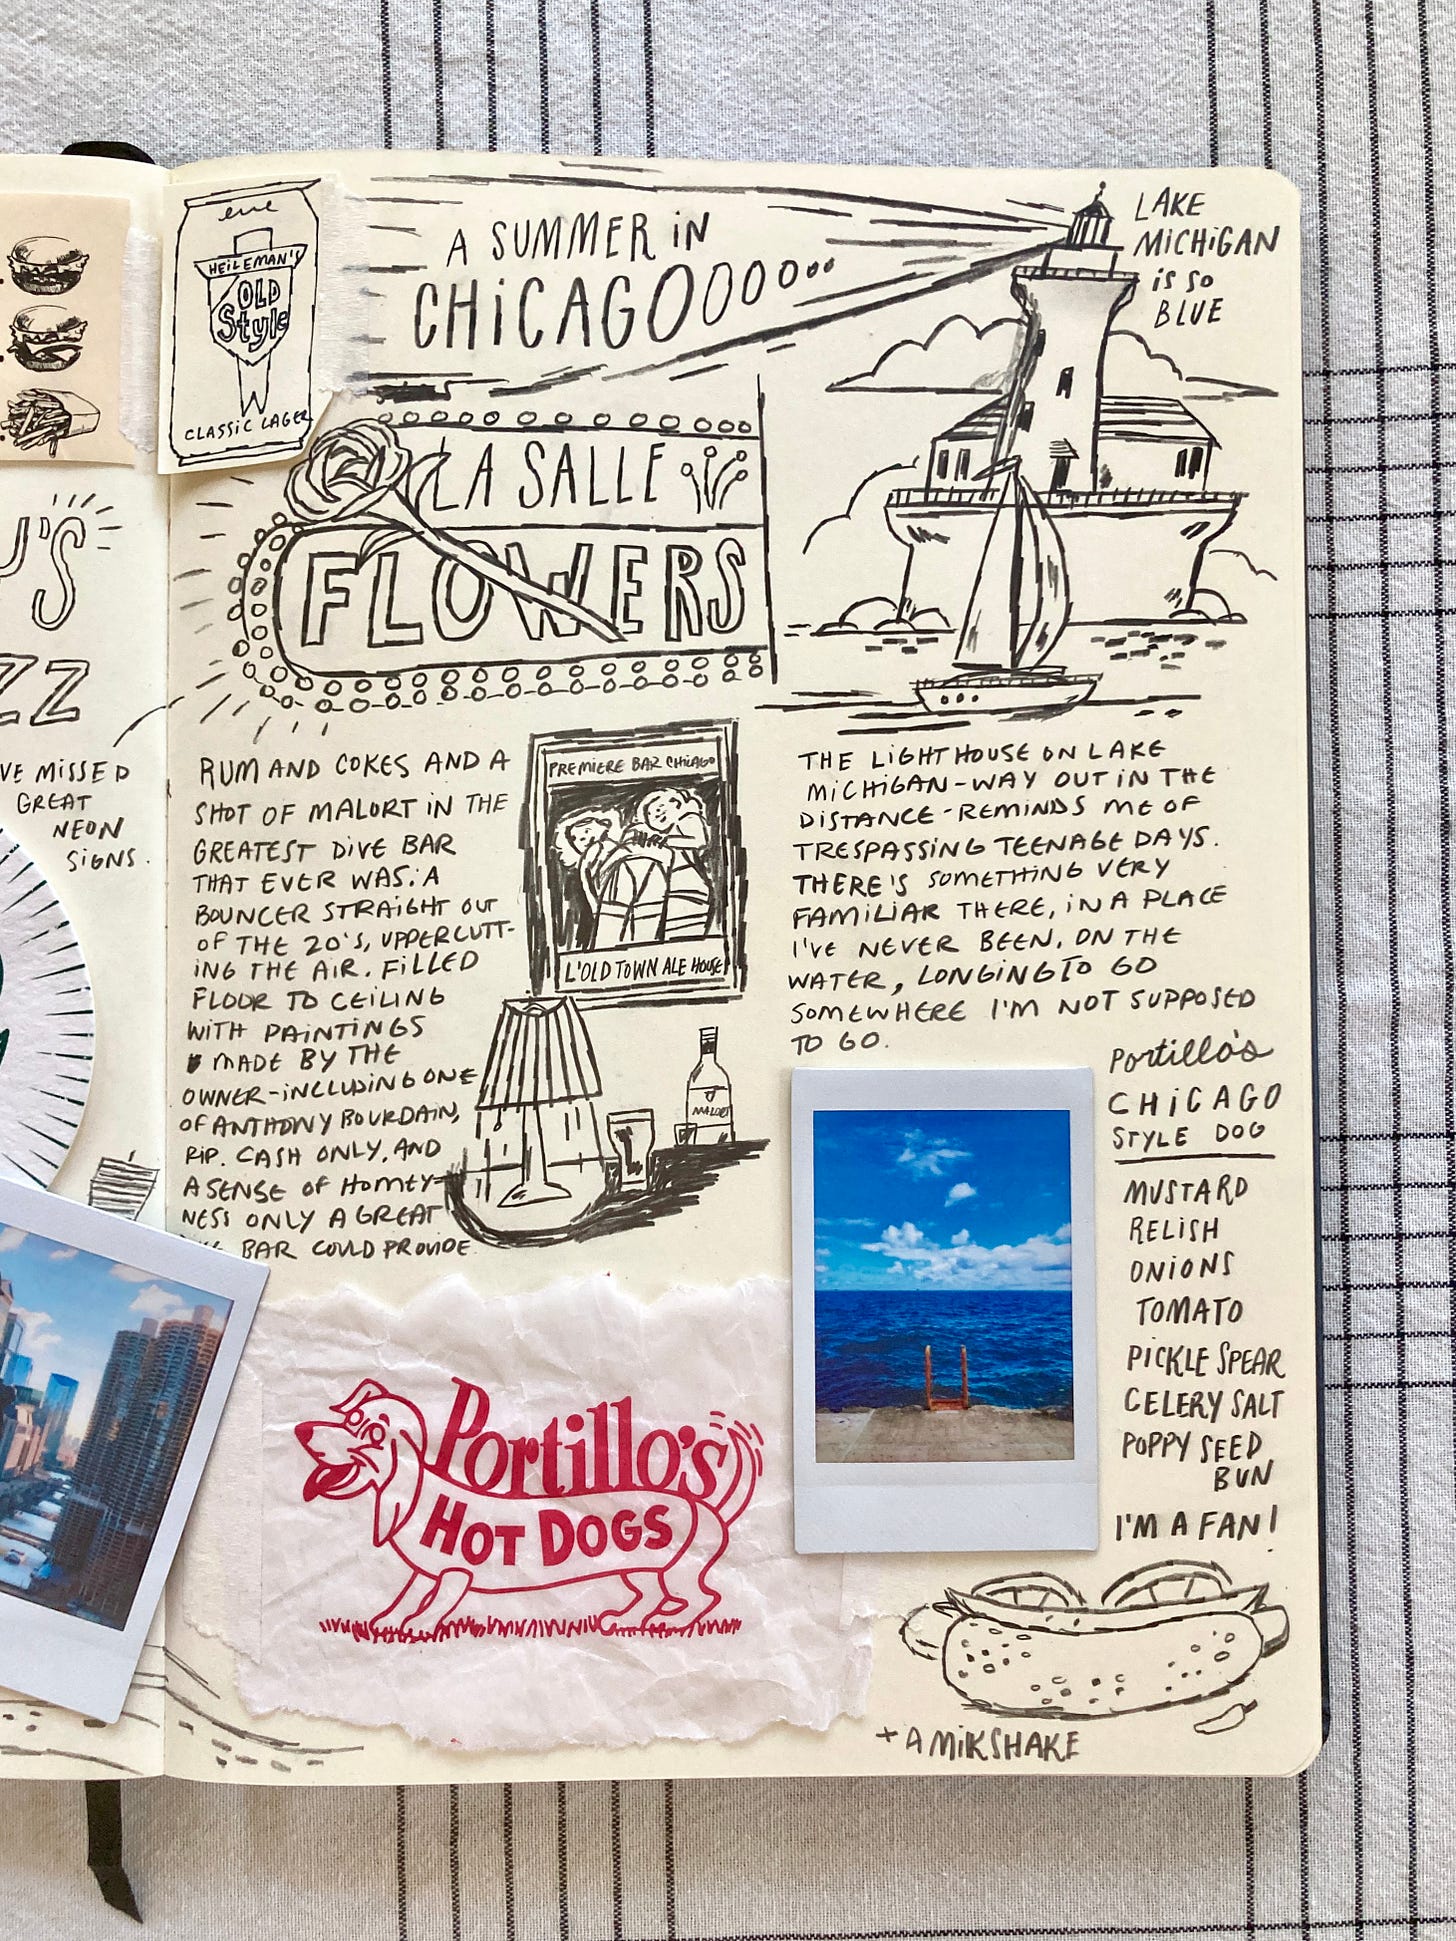 HEILEMAN'S
OLD
Style
CLASSIC LAGER
A SUMMER iN
CHiCAGOOOOO
LAKE
MiCHiGAN
iS SO
BLUE
LA SALLE
FLOWERS
U'S
ZZ
VE MISSED
GREAT
NEON
SiGNS.
RUM AND COKES AND A
SHOT OF MALORT iN THE
GREATEST DIVE BAR
THAT EVER WAS. A
BOUNCER STRAIGHT OUT
OF THE 20'S, UPPERCUTT-
ING THE AIR. FILLED
FLOOR TO CEILING
WITH PAINTINGS
MADE BY THE
OWNER-INCLUDING ONE
OF ANTHONY BOURDAIN,
RIP. CASH ONLY, AND
A SENSE OF HOMEY-
NESS ONLY A GREAT
BAR COULD PROVIDE.
PREMIERE BAR CHiCAGO
L'OLD TOWN ALE HOUSE
MALORT
THE LIGHTHOUSE ON LAKE
MiCHiGAN-WAY OUT iN THE
DISTANCE-REMINDS ME OF
TRESPASSING TEENAGE DAYS.
THERE'S SOMETHING VERY
FAMILIAR THERE, iN A PLACE
I'VE NEVER BEEN. ON THE
WATER, LONGING TO GO
SOMEWHERE I'M NOT SUPPOSED
TO GO.
Portillo's
CHiCAGO
STYLE DOG
MUSTARD
RELISH
ONIONS
TOMATO
PICKLE SPEAR
CELERY SALT
POPPY SEED
BUN
I'M A FAN!
+ A MiKSHAKE
Portillo's
HOT DOGS